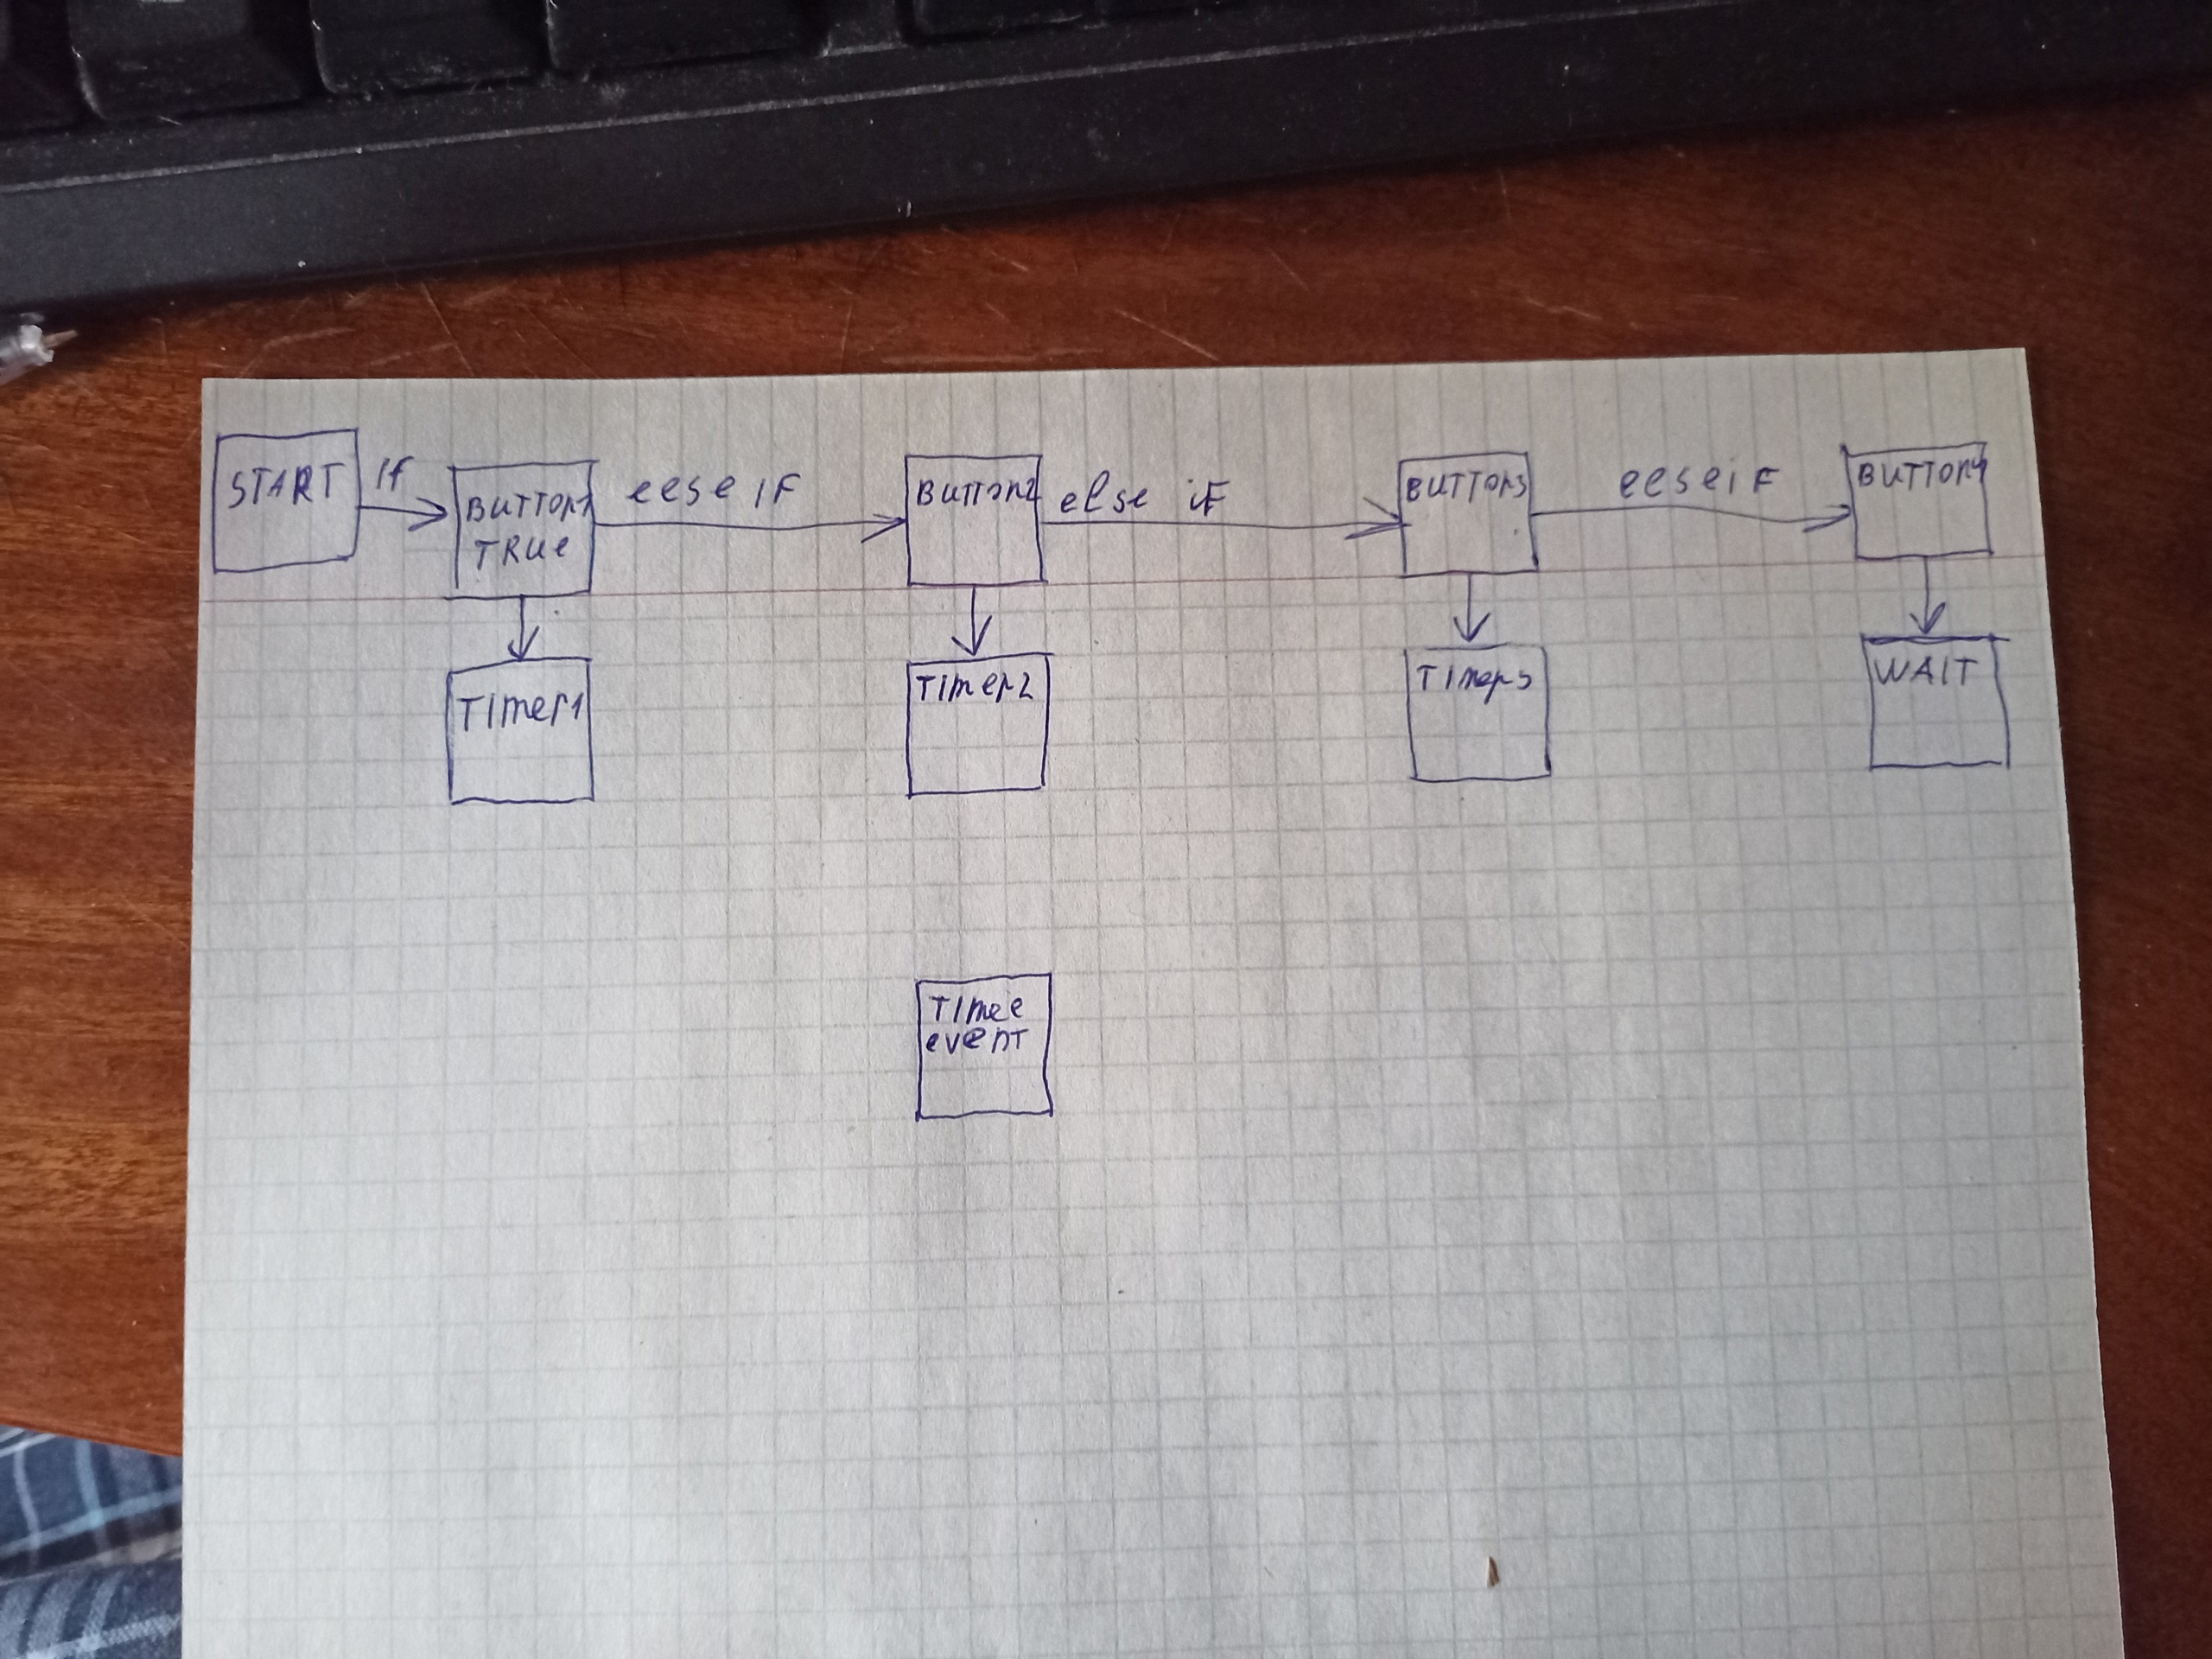 START
If
BUTTON1
TRUe
else IF
BUTTON2
else iF
BUTTON3
elseiF
BUTTON4
TImer1
TImer2
TImer3
WAIT
TImee
event